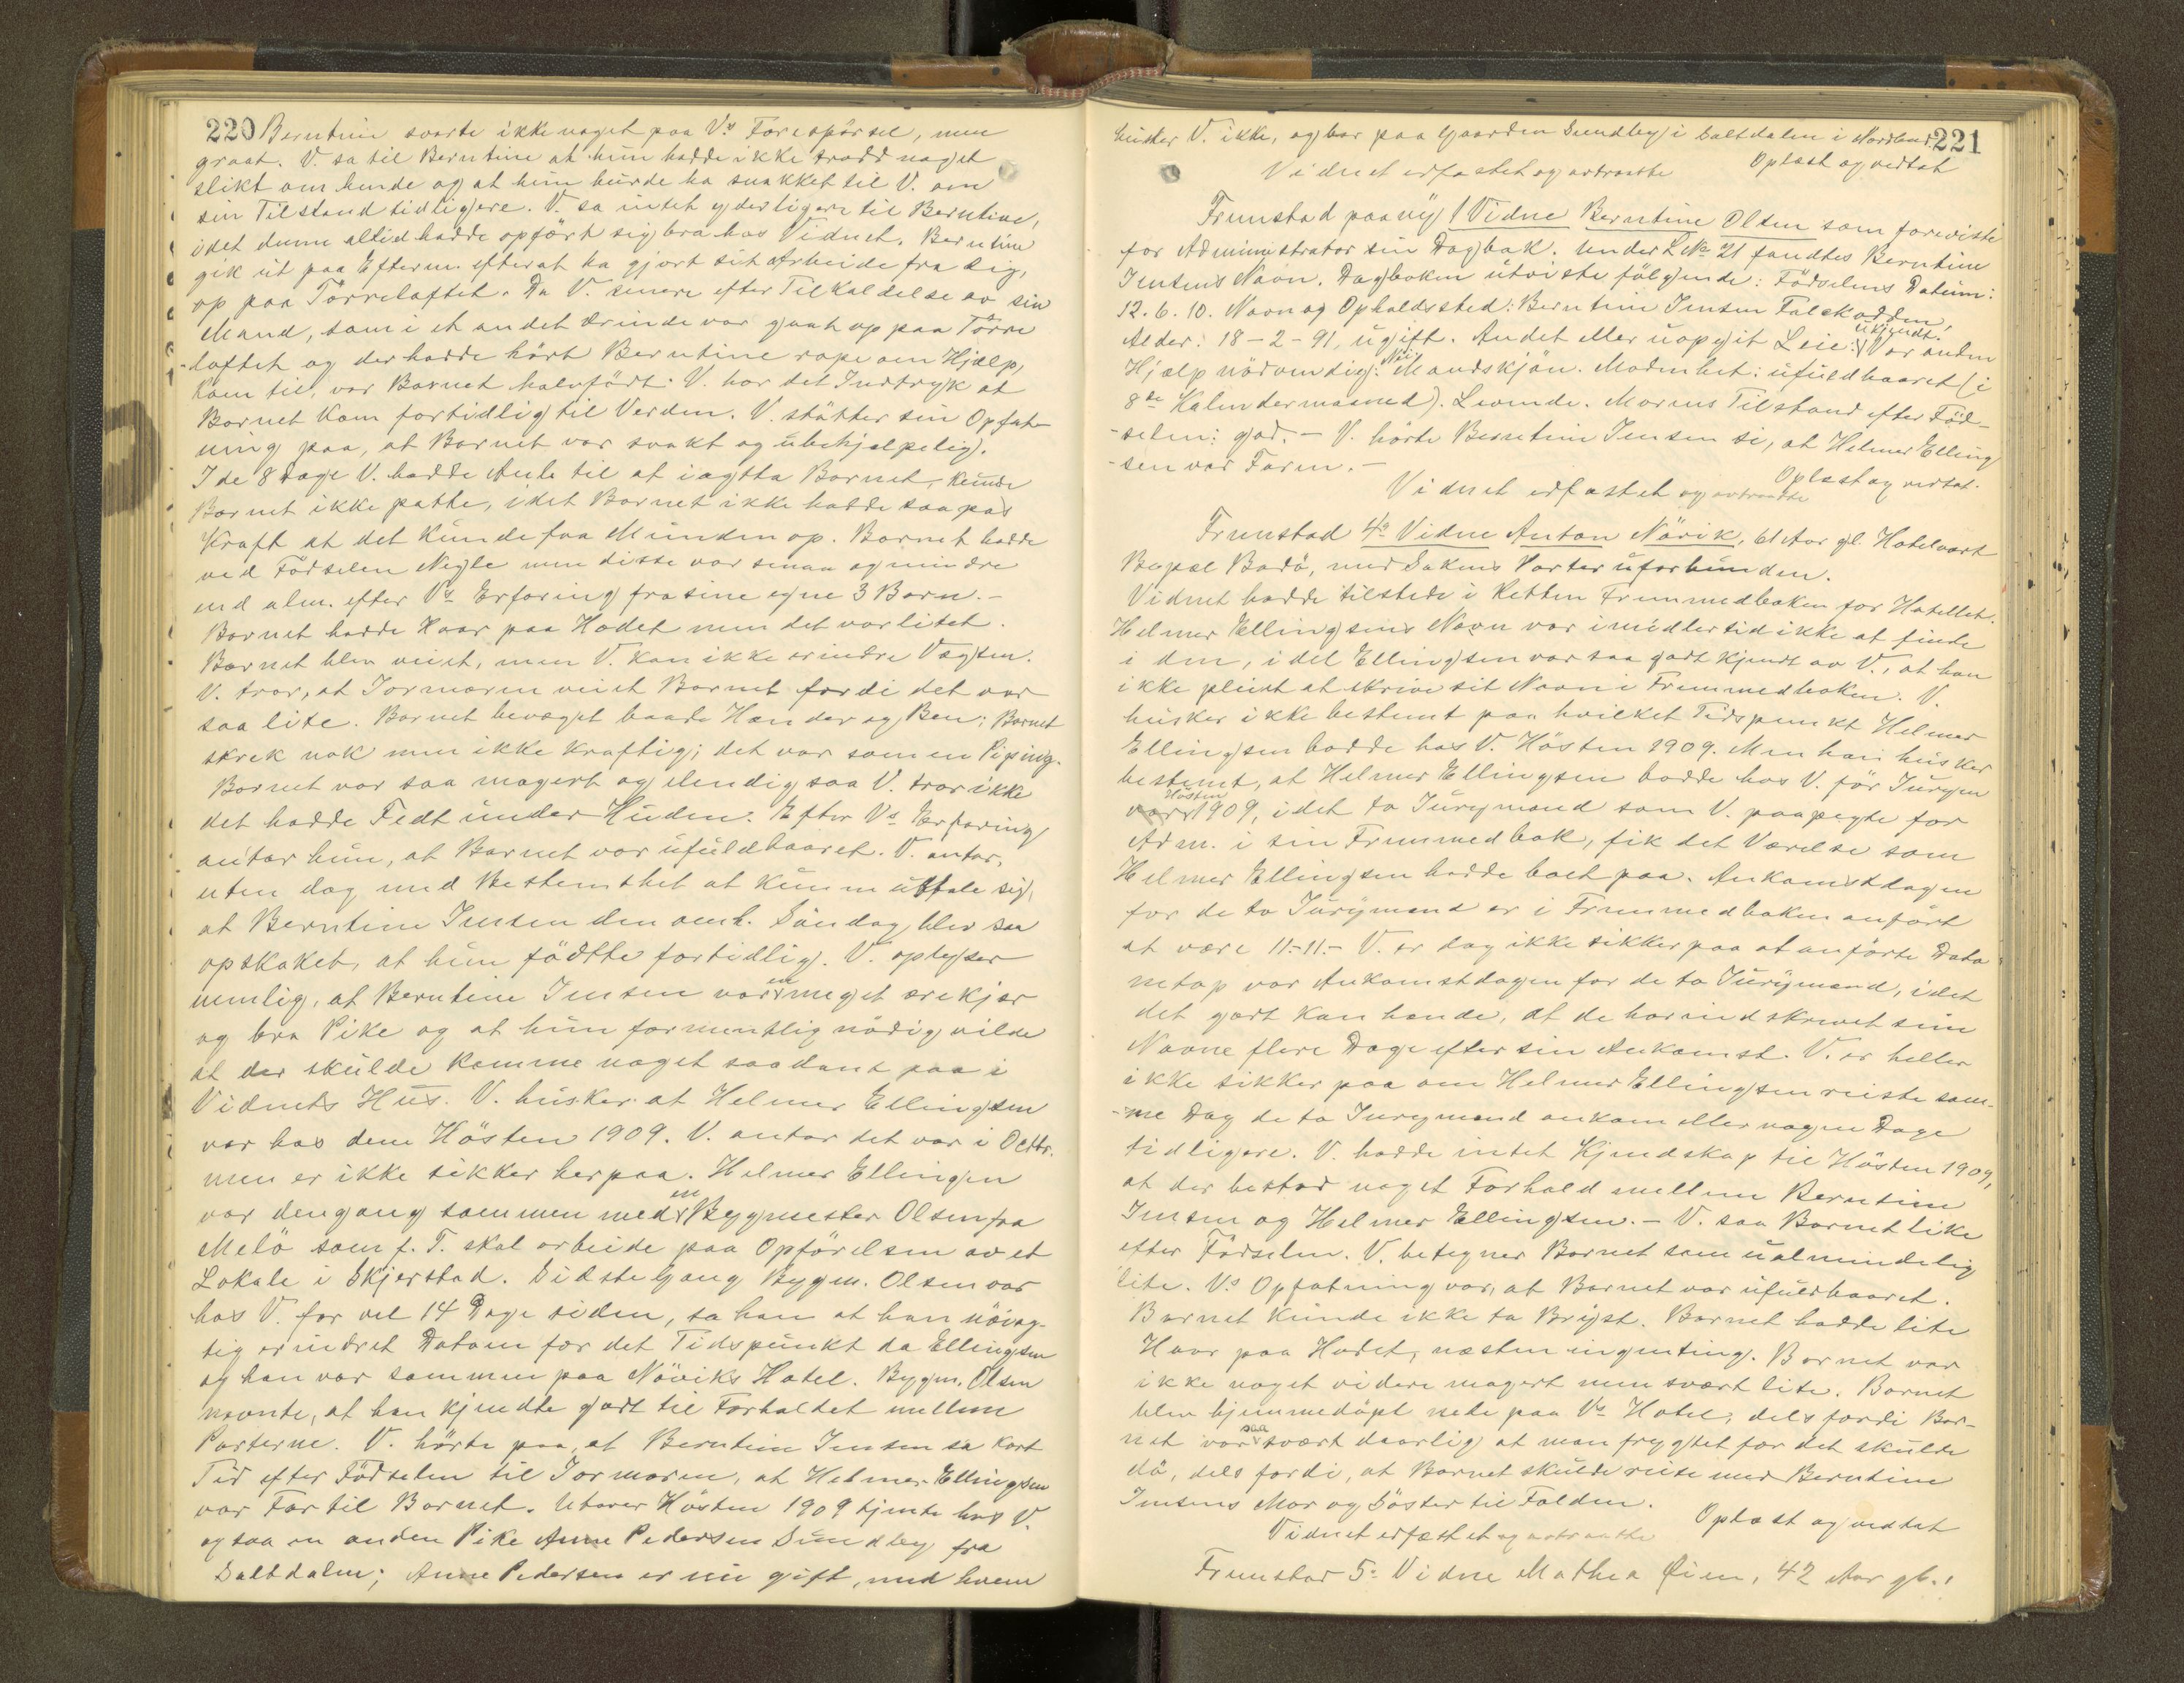 220 Berntine svarte ikke noget paa Vs Forespörsel, men
graat. V. sa til Berntine at hun hadde ikke trodd noget
slikt om hende og at hun burde ha snakket til V. om
sin Tilstand tidligere. V. sa intet yderligere til Berntine,
idet denne altid hadde opfört sig bra hos Vidnet. Berntine
gik ut paa Efterm. efterat ha gjort sit Arbeide fra sig,
op paa Törreloftet. Da V. senere efter Tilkaldelse av sin
Mand, som i et andet Ærinde var gaat op paa Törre
-loftet og der hadde hört Berntine rope om Hjælp,
kom til, var Barnet halvfödt. V. har det Indtryk at
Barnet kom fortidlig til Verden. V. stötter sin Opfat-
ning paa, at Barnet var svakt og ubehjelpelig.
I de 8 Dage V. hadde Anle til at iagtta Barnet, kunde
Barnet ikke patte, idet Barnet ikke hadde saapas
Kraft at det kunde faa Munden op. Barnet hadde
ved Födselen Negle men disse var smaa og mindre
end alm. efter Vs Erfaring fra sine egne 3 Barn.-
Barnet hadde Haar paa Hodet men det var litet.
Barnet blev veiet, men V. kan ikke erindre Vægten.
V. tror, at Jormoren veiet Barnet fordi det var
saa lite. Barnet bevæget baade Hænder og Ben; Barnet
skrek nok men ikke kraftig; det var som en Piping.
Barnet var saa magert og elendig saa V. tror ikke
det hadde Fedt under Huden. Efter Vs Erfaring
antar hun, at Barnet var ufuldbaaret. V. antar,
uten dog med Bestemthet at kunne uttale sig,
at Berntine Jensen den omh. Söndag blev saa
opskaket, at hun födtte fortidlig. V. oplyser
nemlig, at Berntine Jensen var en meget ærekjær
og bra Pike og at hun formentlig nödig vilde
at der skulde komme noget saadant paa i
Vidnets Hus. V. husker at Helmer Ellingsen
var hos dem Hösten 1909. V. antar det var i Octbr.
men er ikke sikker herpaa. Helmer Ellingsen
var dengang sammen med en Bygmester Olsen fra
Melö som f. T. skal arbeide paa Opförelsen av et
Lokale i Skjerstad. Sidste Gang Bygm. Olsen var
hos V. for vel 14 Dage siden, sa han at han nöiag-
tig erindret Datoen for det Tidspunkt da Ellingsen
og han var sammen paa Növiks Hotel. Bygm. Olsen
nævnte, at han kjendte godt til Forholdet mellem
Parterne. V. hörte paa, at Berntine Jensen sa kort
Tid efter Födselen til Jormoren, at Helmer Ellingsen
var Far til Barnet. Utover Hösten 1909 tjente hos V.
ogsaa en anden Pike Anne Pedersen Sundby fra
Saltdalen; Anne Pedersen er nu gift, med hvem
221
husker V. ikke, og bor paa Gaarden Sundby i Saltdalen i Nordland
Oplæst og vedtat
Vidnet edfæstet og avtraatte
Fremstod paany 1 Vidne Berntine Olsen som foreviste
for Administrator sin Dagbok. Under L. No 21 fandtes Berntine
Jensens Navn. Dagboken utviste fölgende: Födselens Datum:
12.6.10. Navn og Opholdssted: Berntine Jensen Falckodden,
Alder: 18-2-91, ugift. Andet eller uopgit Leie: ukjendt. Var anden
Hjælp nödvendig: Nei. Mandskjön. Modenhet: ufuldbaaret (i
8de Kalendermaaned). Levende. Morens Tilstand efter Föd-
-selen: god. - V. hörte Berntine Jensen si, at Helmer Elling
-sen var Faren.-
Oplæst og vedtat.
Vidnet edfæstet og avtraatte
Fremstod 4de Vidne Anton Növik, 61 Aar gl. Hotelvært
Bopæl Bodö, med Sakens Parter uforbunden.
Vidnet hadde tilstede i Retten Fremmedboken for Hotellet.
Helmer Ellingsens Navn var imidlertid ikke at finde
i den, idet Ellingsen var saa godt kjendt av V., at han
ikke pleiet at skrive sit Navn i Fremmedboken. V.
husker ikke bestemt paa hvilket Tidspunkt Helmer
Ellingsen bodde hos V. Hösten 1909. Men han husker
bestemt, at Helmer Ellingsen bodde hos V. för Juryen
Hösten 1909, idet to Jurymænd som V. paapegte for
Adm. i sin Fremmedbok, fik det Værelse som
Helmer Ellingsen hadde boet paa. Ankomstdagen
for de to Jurymænd er i Fremmedboken anfört
at være 11.-11.- V. er dog ikke sikker paa at anförte Dato
netop var Ankomstdagen for de to Jurymænd, idet
det godt kan hende, at de har indskrevet sine
Navne flere Dage efter sin Ankomst. V. er heller
ikke sikker paa om Helmer Ellingsen reiste sam-
-me Dag de to Jurymænd ankom eller nogen Dage
tidligere. V. hadde intet Kjendskap til Hösten 1909,
at der bestod noget Forhold mellem Berntine
Jensen og Helmer Ellingsen. - V. saa Barnet like
efter Födselen. V. betegner Barnet som ualmindelig
lite. Vs Opfatning var, at Barnet var ufuldbaaret.
Barnet kunde ikke ta Bryst. Barnet hadde lite
Haar paa Hodet, næsten ingenting. Barnet var
ikke noget videre magert men svært lite. Barnet
blev hjemmedöpt nede paa Vs Hotel, dels fordi Bar-
net var saa svært daarlig at man frygtet for det skulde
dö, dels fordi, at Barnet skulde reise med Berntine
Jensens Mor og Söster til Folden.
Oplæst og vedtat
Vidnet edfæstet og avtraatte
Fremstod 5. Vidne Mathea Öien, 42 Aar gl.,